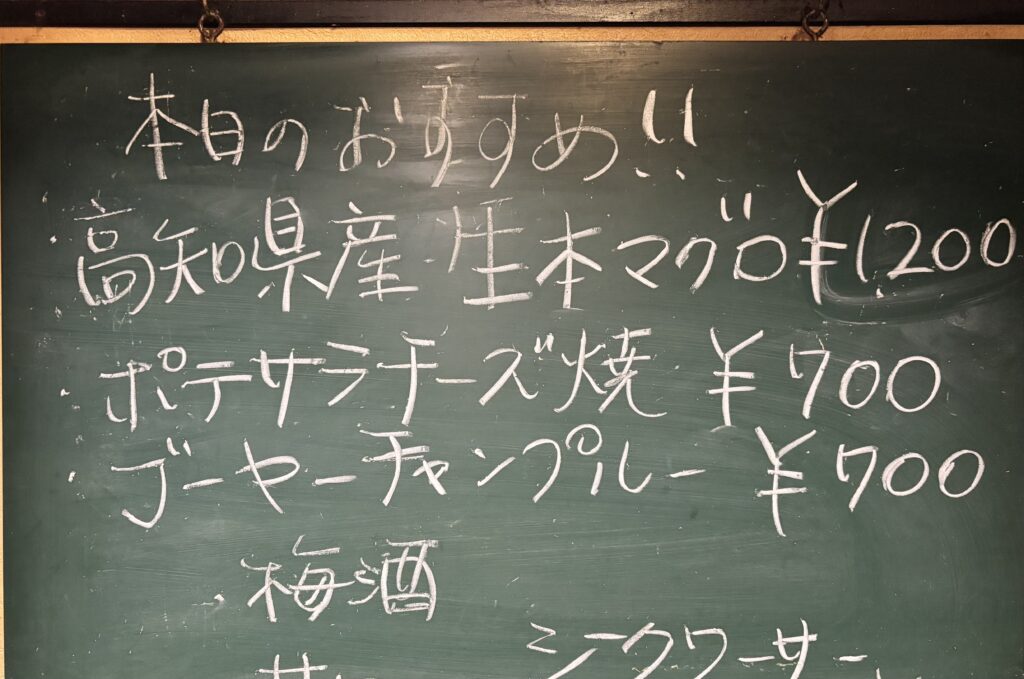 本日のおすすめ!!
・高知県産 生本マグロ ¥1,200
・ポテサラチーズ焼 ¥700
・ゴーヤーチャンプルー ¥700
梅酒
シークワーサー